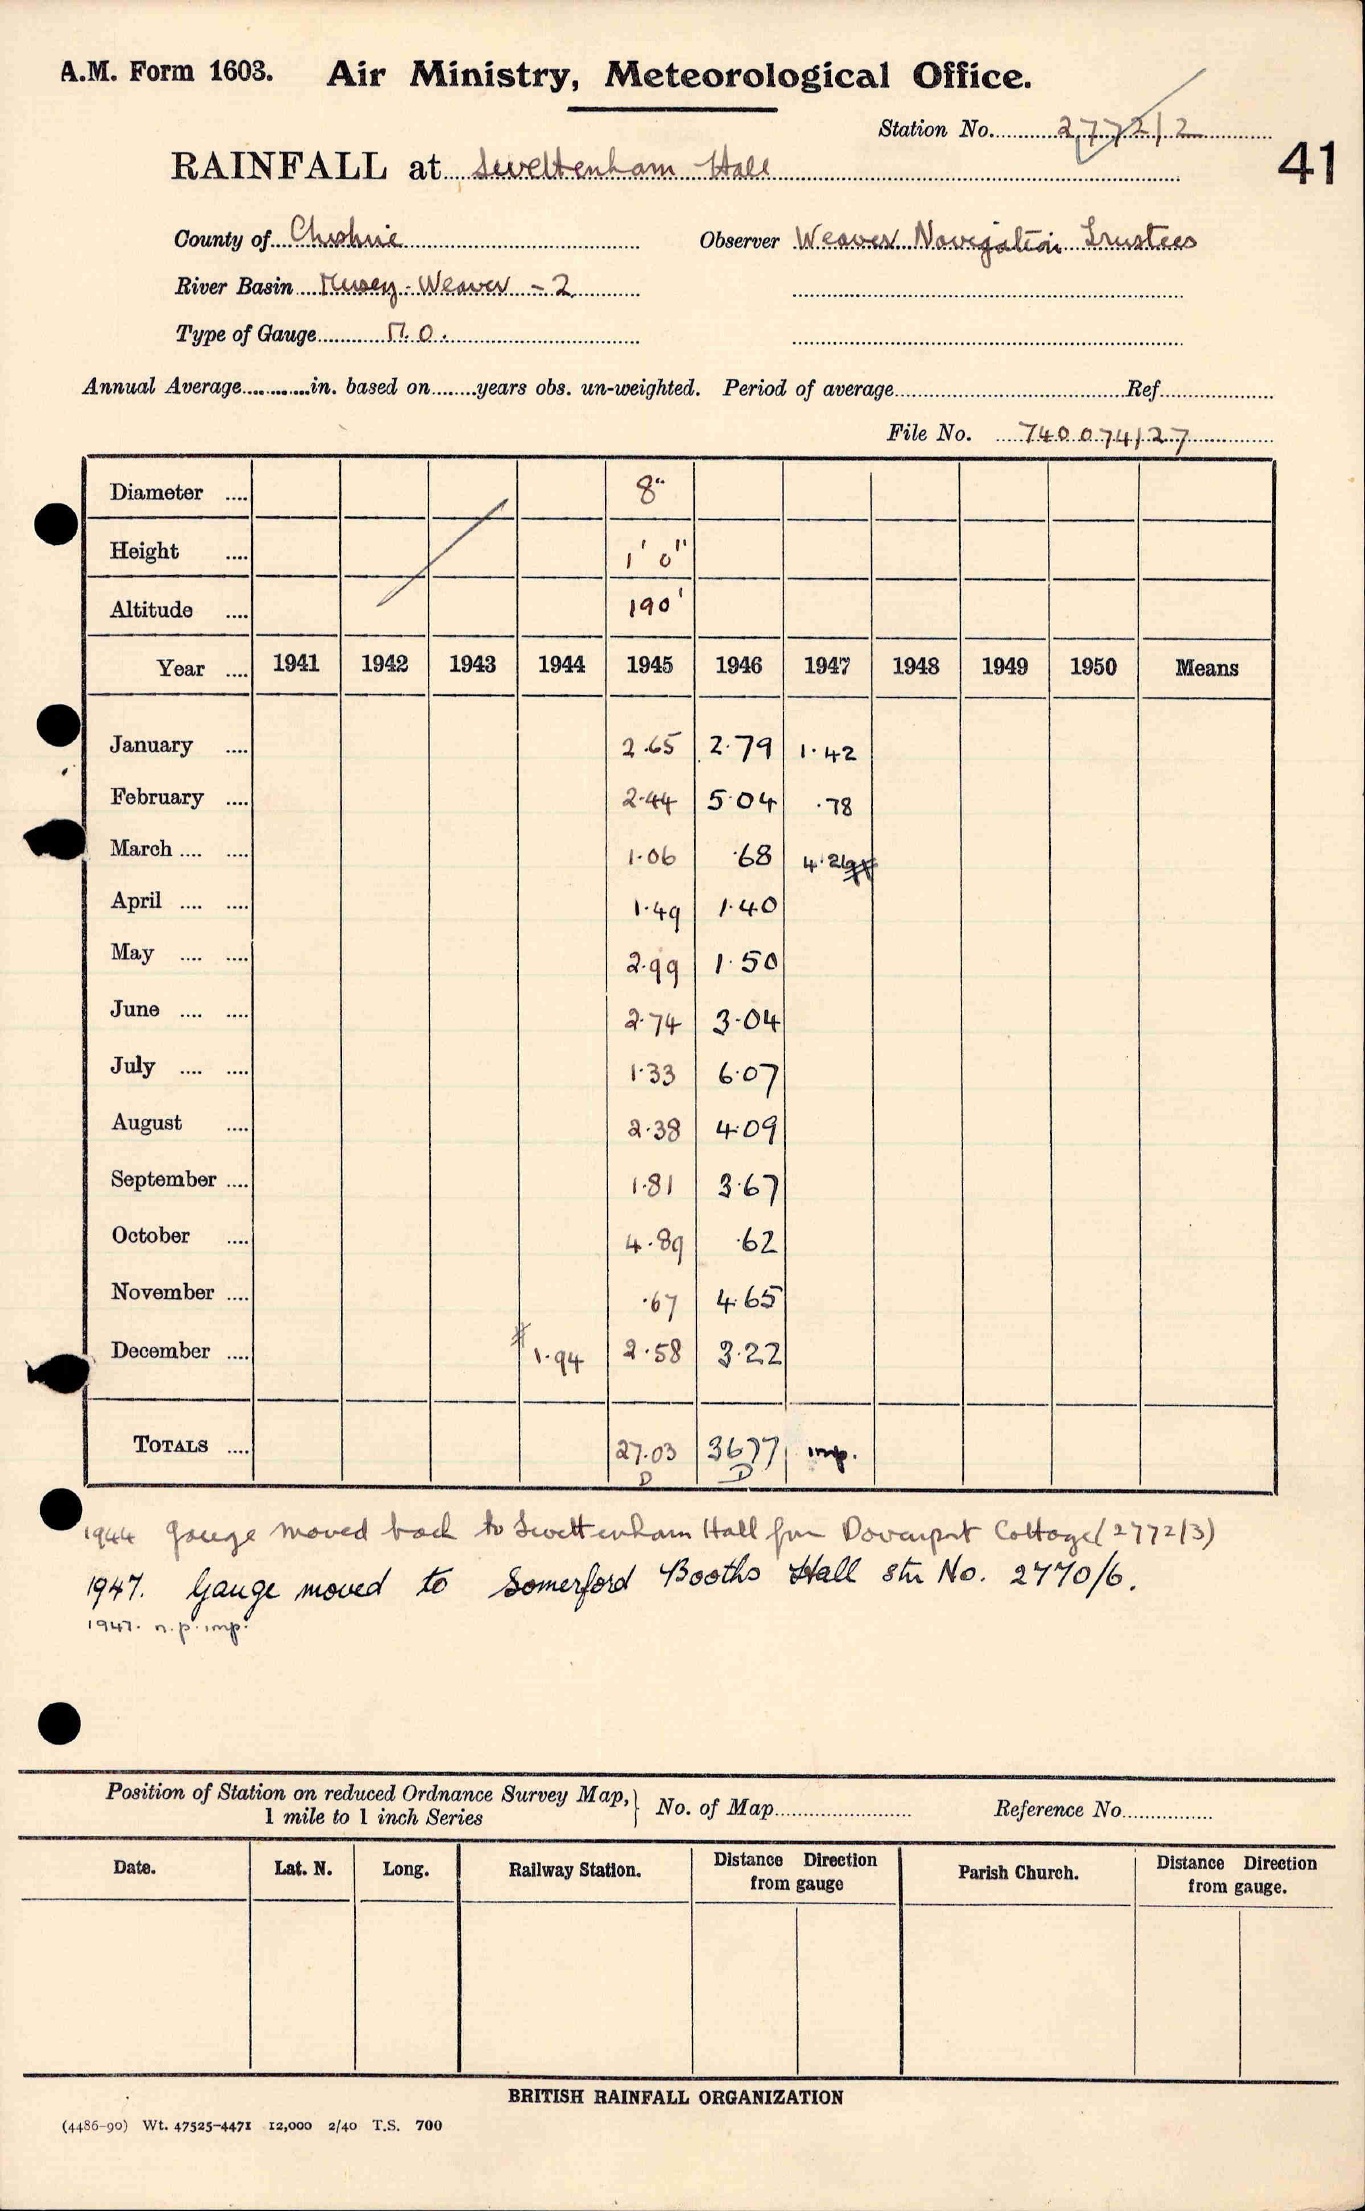 A.M. Form 1603. Air Ministry, Meteorological Office.
Station No. 2772/2
41
RAINFALL at Swettenham Hall
County of Cheshire Observer Weaver Navigation Trustees
River Basin Mersey-Weaver - 2
Type of Gauge M.O.
Annual Average............in. based on........years obs. un-weighted. Period of average.............Ref.............
File No. 740074/27
Diameter .... 8"
Height .... 1' 0"
Altitude .... 190'
Year .... 1941 1942 1943 1944 1945 1946 1947 1948 1949 1950 Means
January .... 2.65 2.79 1.42
February .... 2.44 5.04 .78
March .... .... 1.06 .68 4.26
April .... .... 1.49 1.40
May .... .... 2.99 1.50
June .... .... 2.74 3.04
July .... .... 1.33 6.07
August .... 2.38 4.09
September .... 1.81 3.67
October .... 4.89 .62
November .... .67 4.65
December .... # 1.94 2.58 3.22
TOTALS .... 27.03 36.77 imp.
D D
1944 gauge moved back to Swettenham Hall from Davenport Cottage (2772/3)
1947. Gauge moved to Somerford Booths Hall stn No. 2770/6.
1947. n.p. imp.
Position of Station on reduced Ordnance Survey Map, } No. of Map.............. Reference No..............
1 mile to 1 inch Series
Date. Lat. N. Long. Railway Station. Distance Direction from gauge Parish Church. Distance Direction from gauge.
BRITISH RAINFALL ORGANIZATION
(4486-90) Wt. 47525-4471 12,000 2/40 T.S. 700